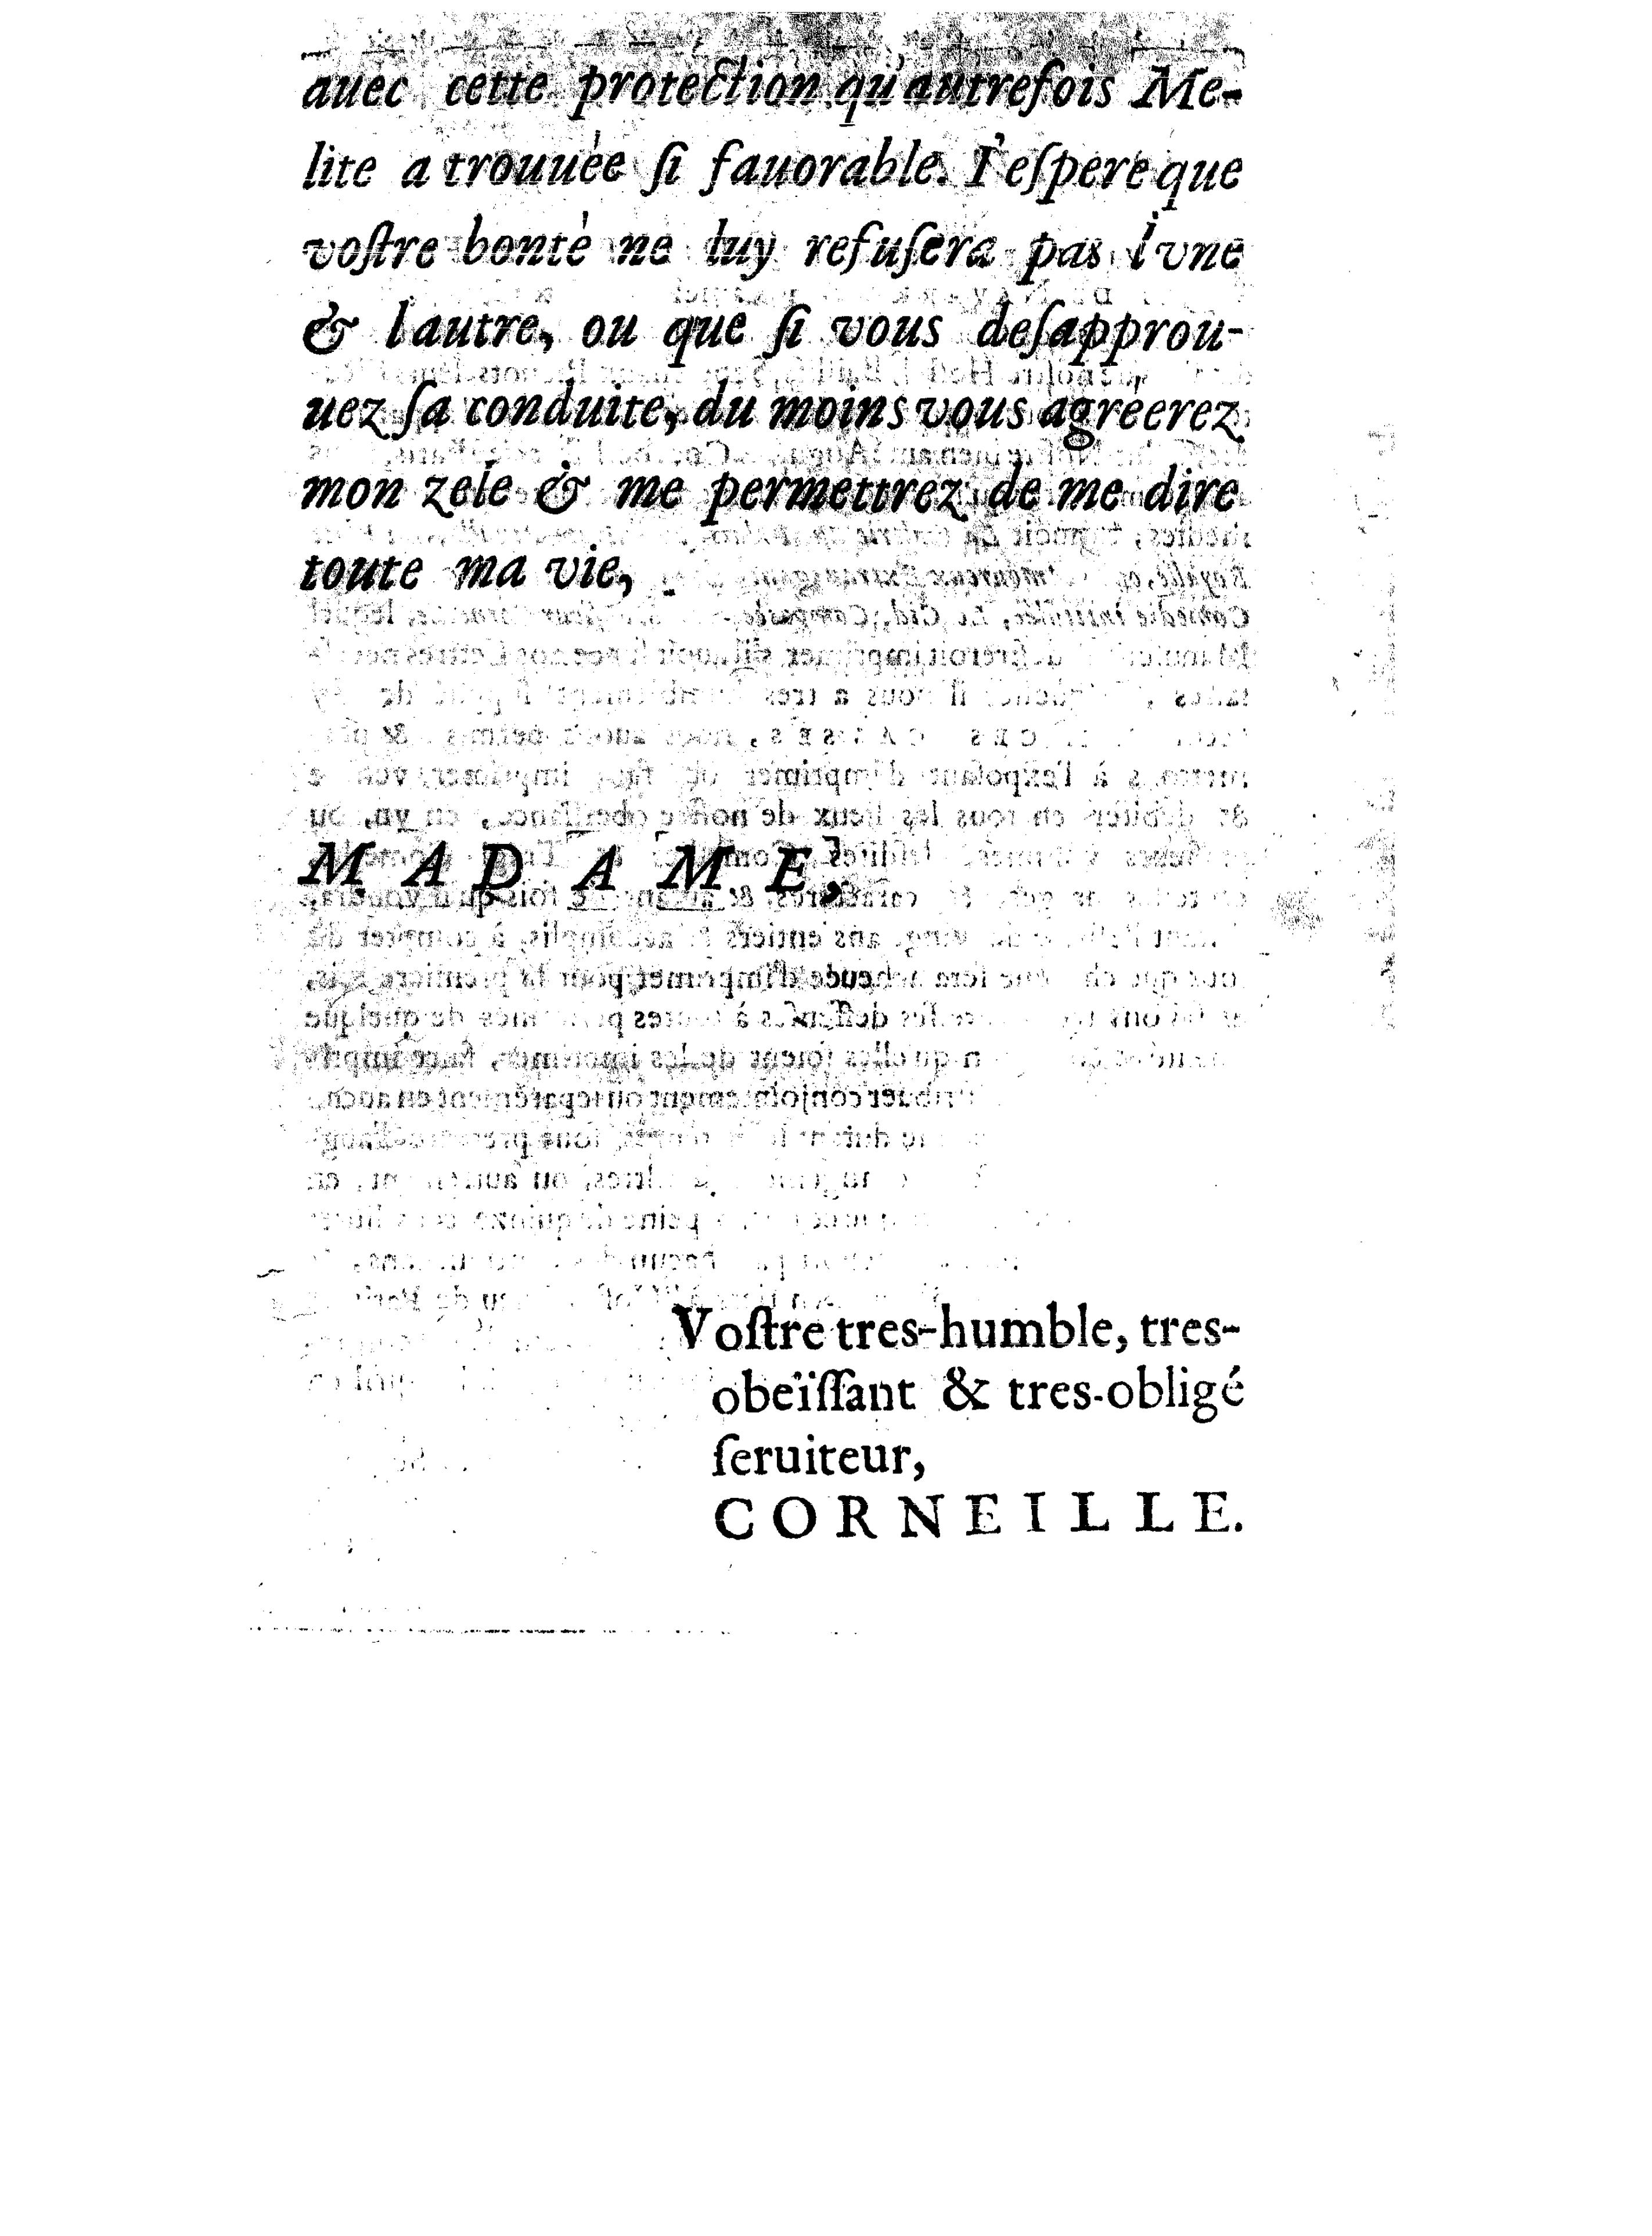 auec cette protection qu'autrefois Me-
lite a trouuée ſi fauorable. I'eſpere que
voſtre bonté ne luy refuſera pas l'vne
& l'autre, ou que ſi vous deſapprou-
uez ſa conduite, du moins vous agréerez
mon zele & me permettrez de me dire
toute ma vie,
MADAME,
Voſtre tres-humble, tres-
obeïſſant & tres-obligé
ſeruiteur,
CORNEILLE.